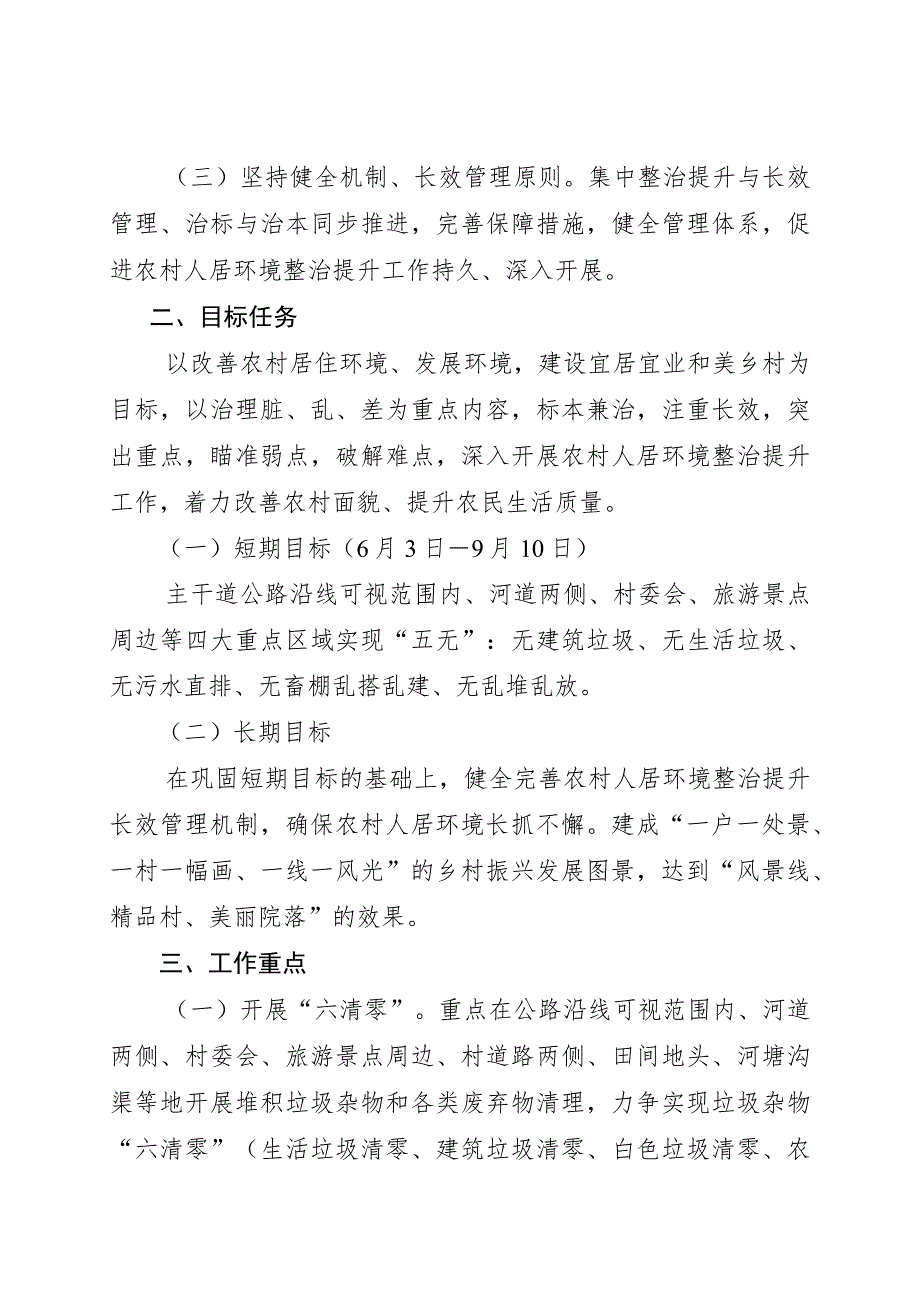 （三）坚持健全机制、长效管理原则。集中整治提升与长效
管理、治标与治本同步推进，完善保障措施，健全管理体系，促
进农村人居环境整治提升工作持久、深入开展。
二、目标任务
以改善农村居住环境、发展环境，建设宜居宜业和美乡村为
目标，以治理脏、乱、差为重点内容，标本兼治，注重长效，突
出重点，瞄准弱点，破解难点，深入开展农村人居环境整治提升
工作，着力改善农村面貌、提升农民生活质量。
（一）短期目标（6月3日—9月10日）
主干道公路沿线可视范围内、河道两侧、村委会、旅游景点
周边等四大重点区域实现“五无”：无建筑垃圾、无生活垃圾、
无污水直排、无畜棚乱搭乱建、无乱堆乱放。
（二）长期目标
在巩固短期目标的基础上，健全完善农村人居环境整治提升
长效管理机制，确保农村人居环境长抓不懈。建成“一户一处景、
一村一幅画、一线一风光”的乡村振兴发展图景，达到“风景线、
精品村、美丽院落”的效果。
三、工作重点
（一）开展“六清零”。重点在公路沿线可视范围内、河道
两侧、村委会、旅游景点周边、村道路两侧、田间地头、河塘沟
渠等地开展堆积垃圾杂物和各类废弃物清理，力争实现垃圾杂物
“六清零”（生活垃圾清零、建筑垃圾清零、白色垃圾清零、农